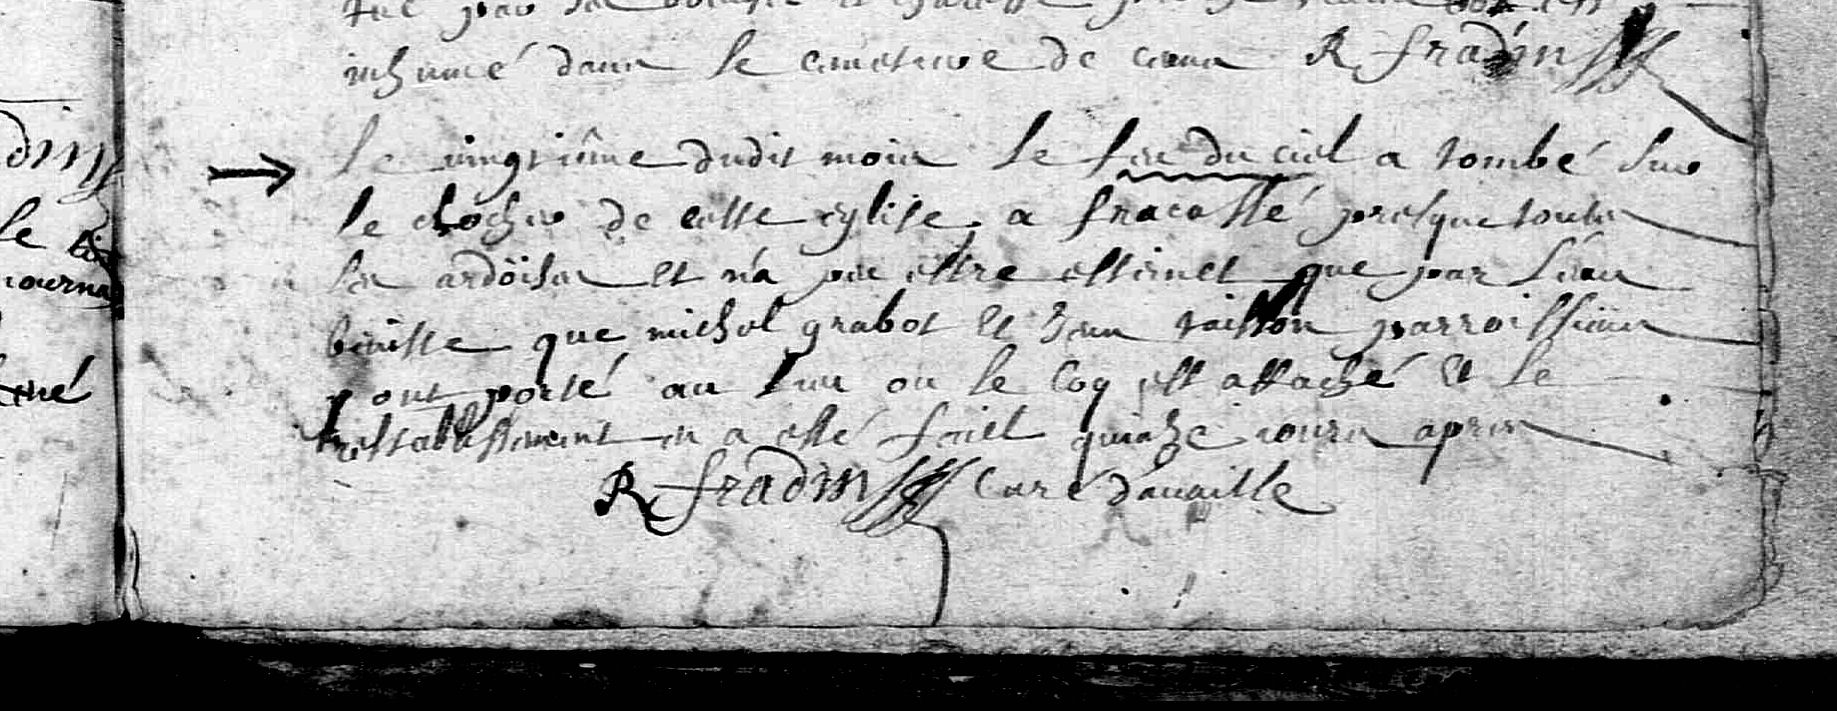 inhumé dans le cimetiere de ceans R fradin
din
Le vingtiême dudit mois le feu du ciel a tombé sur
le clocher de cette eglise, a fracassé presque toutes
le
les ardoises et n'a peu estre esteinct que par l'eau
journa
beniste que michel grabot et Jean paroissiens
y ont porté au lieu ou le Coq est attaché et le
restablissement en a esté faict quinze jours apres
R fradin Curé d'availle